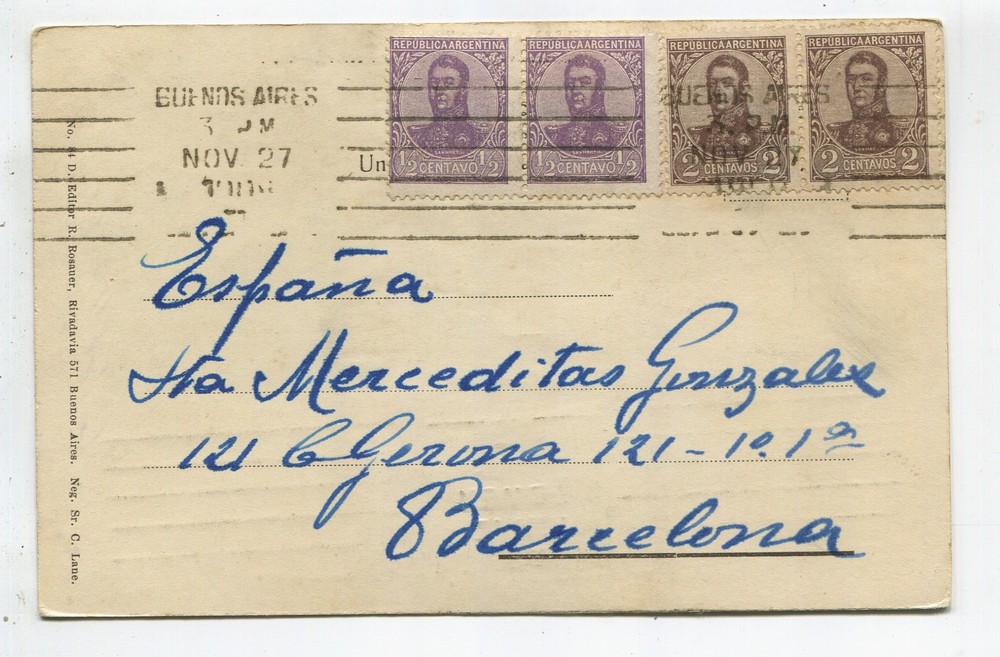 REPÚBLICA ARGENTINA
½ CENTAVO ½
REPÚBLICA ARGENTINA
½ CENTAVO ½
REPÚBLICA ARGENTINA
2 CENTAVOS 2
REPÚBLICA ARGENTINA
2 CENTAVOS 2
BUENOS AIRES
3 PM
NOV 27
BUENOS AIRES
3 PM
NOV 27
Un
España
Sta Merceditas Gonzalez
121 C Gerona 121 - 1º. 1ª
Barcelona
No. 84 D. Editor R. Rosauer, Rivadavia 571 Buenos Aires. Neg. Sr. C. Lane.